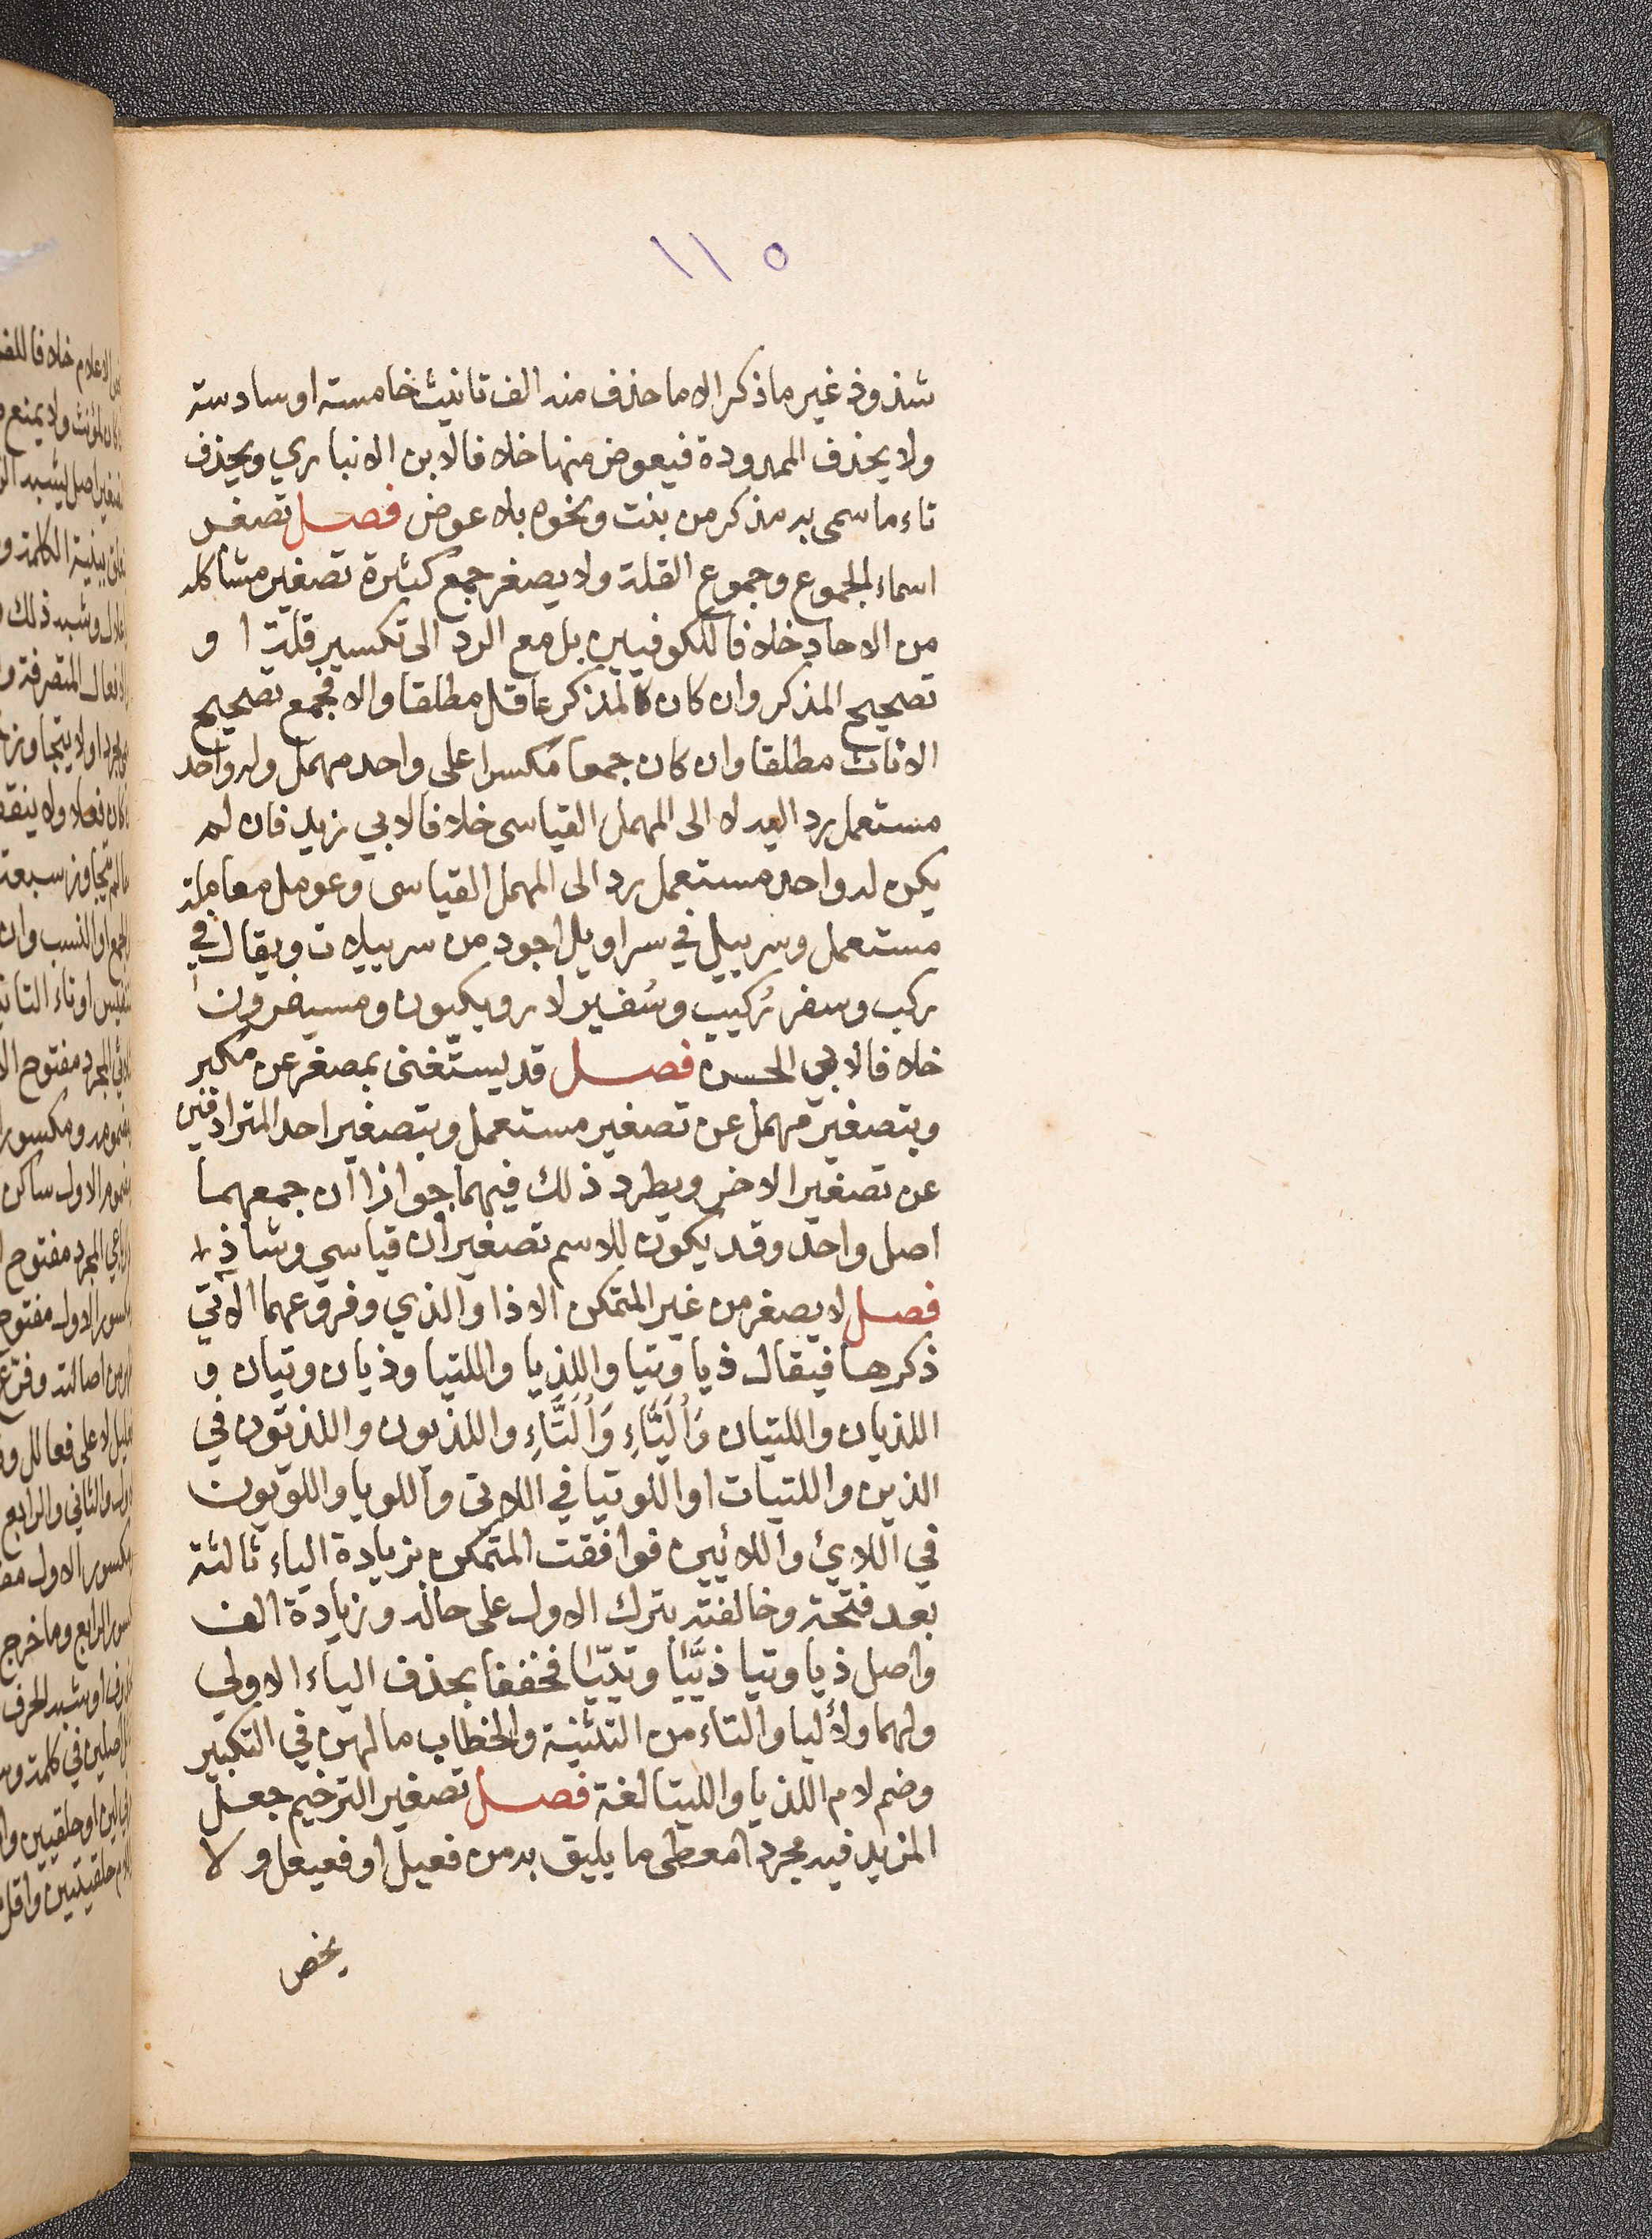 ١١٥
شذوذ غير ما ذكر الا ما حذف منه الف تانيث خامسة او سادسة
ولا يحذف الممدودة فيعوض منها خلافا لابن الانباري ويحذف
تاء ما سمي به مذكر من بنت ونحوه بلا عوض فصل تصغر
اسماء الجموع وجموع القلة ولا يصغر جمع كثرة تصغير مشاكله
من الاحاد خلافا للكوفيين بل مع الرد الى تكسير قلة ا و
تصحيح المذكر وان كان لمذكر عاقل مطلقا والا فجمع تصحيح
الاناث مطلقا وان كان جمعا مكسرا على واحد مهمل وله واحد
مستعمل رد اليه لا الى المهمل القياسى خلافا لابي زيد فان لم
يكن له واحد مستعمل رد الى المهمل القياسى وعومل معاملة
مستعمل وسربيل في سراويل اجود من سربيلات ويقال في
ركب وسفر رُكيب وسُفير لا رويكبون ومسيفرون
خلافا لابي الحسن فصل قد يستغنى بمصغر عن مكبر
وبتصغير مهمل عن تصغير مستعمل وبتصغير احد المترادفين
عن تصغير الاخر ويطرد ذلك فيهما جوازا ان جمعهما
اصل واحد وقد يكون للاسم تصغيران قياسي وشاذ
فصل لا يصغر من غير المتمكن الا ذا والذي وفروعهما الآتي
ذكرها فيقال ذيا وتيا واللذيا واللتيا وذيان وتيان و
اللذيان واللتيان وَأُلَيَّاءِ وَأُلَيَّاءِ واللذيون واللذيون في
الذين واللتيات او اللويتيا في اللاتي واللويا واللويون
في اللائ واللائين فوافقت المتمكن بزيادة الياء ثالثة
بعد فتحة وخالفته بترك الاول على حاله وزيادة الف
واصل ذيا وتيا ذيَّيا وتيّيا فخففا بحذف الياء الاولى
ولهما ولأليا والتاء من التثنية والخطاب ما لهن في التكبير
وضم لام اللذيا واللتيا لغة فصل تصغير الترخيم جعل
المزيد فيه مجردا معطى ما يليق به من فعيل او فعيعل ولا
يخص